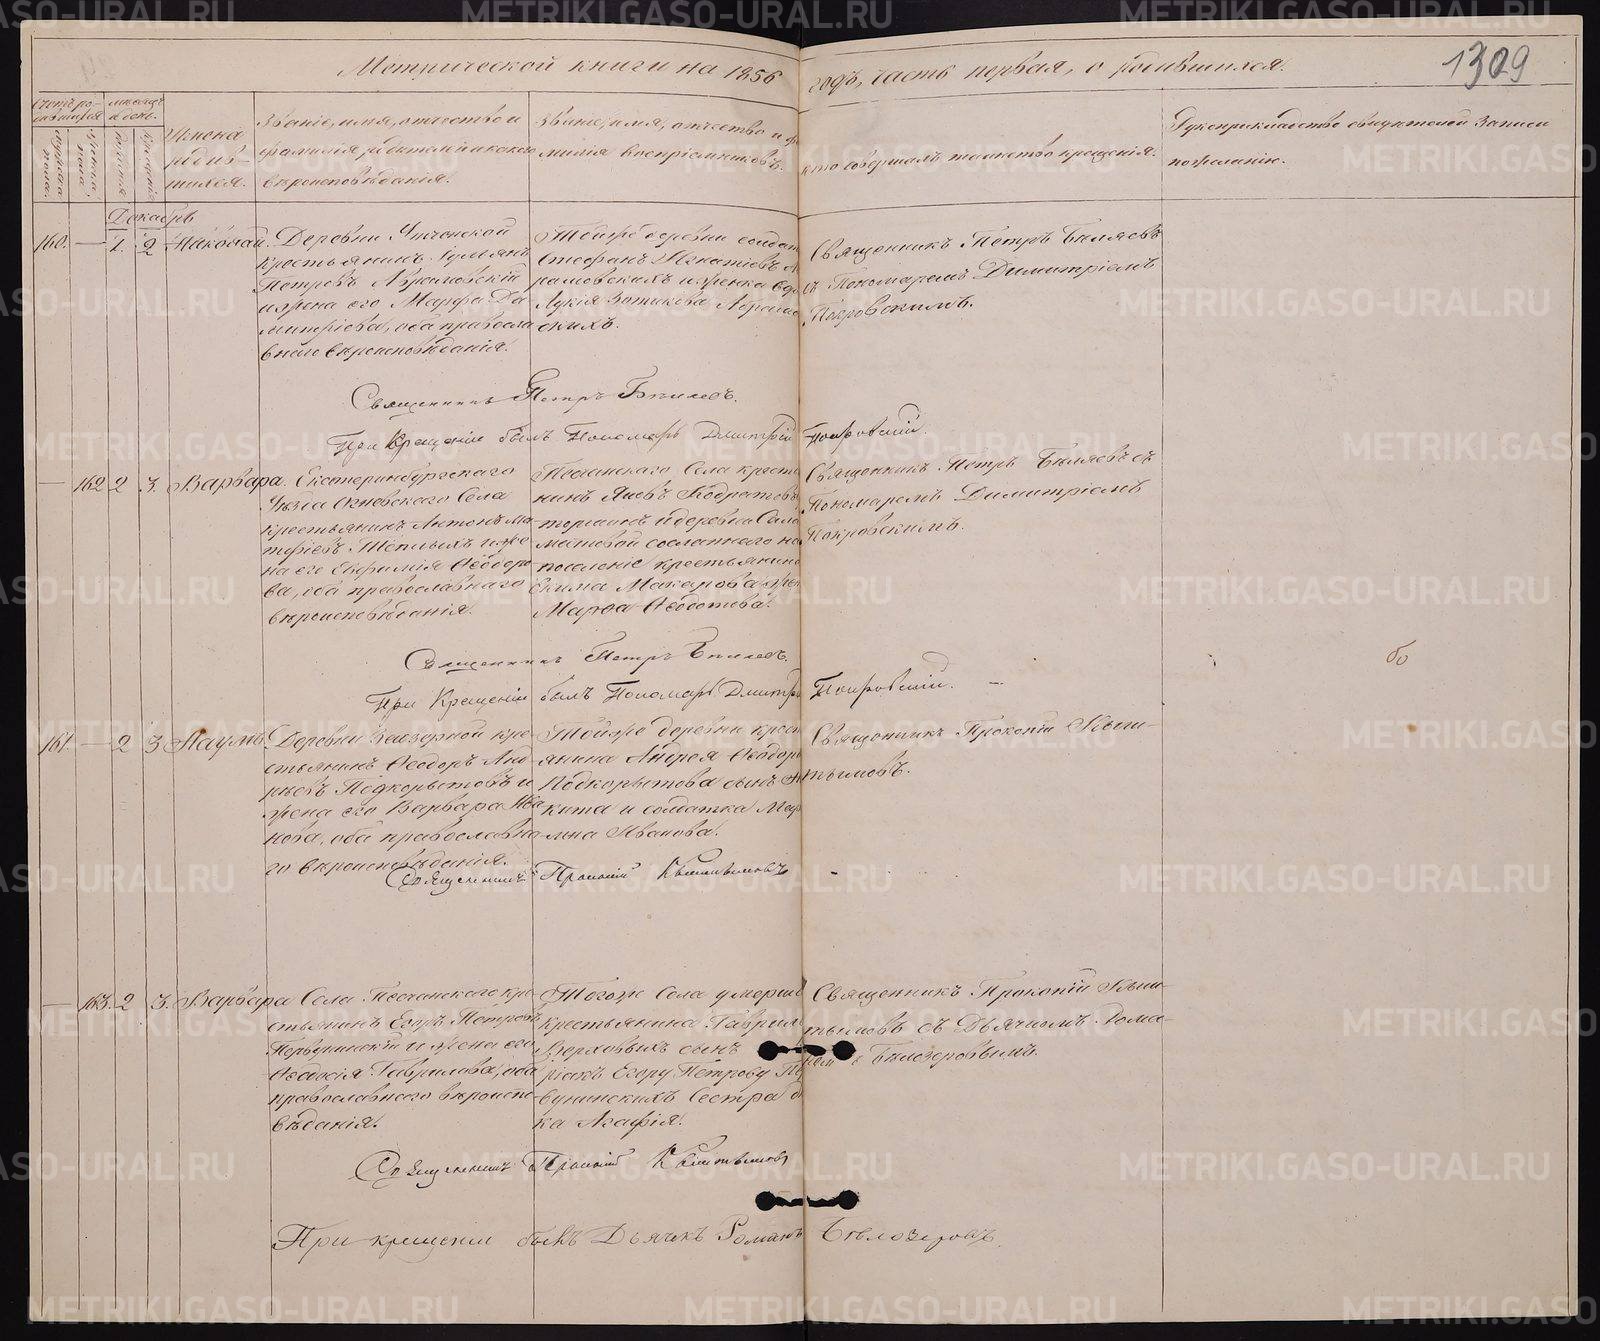 Метрической книги на 1856 годъ, часть первая, о родившихся.
1309
Счетъ родившихся
мужеска пола.
женска пола.
месяцъ и день.
рожденія
крещенія
Имена родившихся.
Званіе, имя, отчество и
фамилія родителей и какого
вѣроисповѣданія.
Званіе, имя, отчество и фамилія воспріемниковъ.
Кто совершалъ таинство крещенія.
Рукоприкладство свидѣтелей записи
по желанію.
Декабрь
160. — 1. 2 Николай.
Деревни
крестьянинъ
Петровъ Абрамовскій
и жена его Марфа Ди
митріева, оба правосла
внаго вѣроисповѣданія.
Тойже деревни солдат
Стефанъ Игнатіевъ
и женка
Лукія Зотикова
скихъ.
Священникъ Петръ Бѣляевъ
съ Пономаремъ Димитріемъ
Покровскимъ.
Священникъ Петръ Бѣляевъ.
При Крещеніи былъ Пономарь Дмитрій Покровскій.
— 162 2 3. Варвара.
Екатеринбургскаго
Уѣзда Огневскаго Села
крестьянинъ Антонъ Ма
тфіевъ Теплыхъ и же
на его Евфимія Ѳеодоро
ва, оба православнаго
вѣроисповѣданія.
Песчанскаго Села крестья
нинъ Яковъ
и деревни
сосланнаго на
поселеніе крестьянина
Екима Макарова жен
Марѳа Ѳедотова.
Священникъ Петръ Бѣляевъ съ
Пономаремъ Димитріемъ
Покровскимъ.
Священникъ Петръ Бѣляевъ.
При Крещеніи былъ Пономарь Дмитрій Покровскій. —
161. — 2 3 Наумъ.
Деревни кре
стьянинъ Ѳеодоръ Анд
реевъ Подкорытовъ и
жена его Варвара Ива
нова, оба православна
го вѣроисповѣданія.
Тойже деревни крест
янина Андрея Ѳеодоро
Подкорытова сынъ Ни
кита и солдатка Мар
Иванова.
Священникъ Прокопій Кыш
тымовъ.
Священникъ Прокопій Кыштымовъ
— 163. 2 3. Варвара
Села Песчанскаго кре
стьянинъ Егоръ Петровъ
Первунинскій и жена его
Ѳеодосія Гаврилова, оба
православнаго вѣроиспо
вѣданія.
Тогоже Села умерша
крестьянина Гаврил
Верховыхъ сынъ
Егору Петрову Пер
вунинскихъ Сестра д
ка Агафія.
Священникъ Прокопій Кыш
тымовъ съ Дьячкомъ Рома
номъ Бѣлозеровымъ.
Священникъ Прокопій Кыштымовъ
При крещеніи былъ Дьячекъ Романъ Бѣлозеровъ.
METRIKI.GASO-URAL.RU